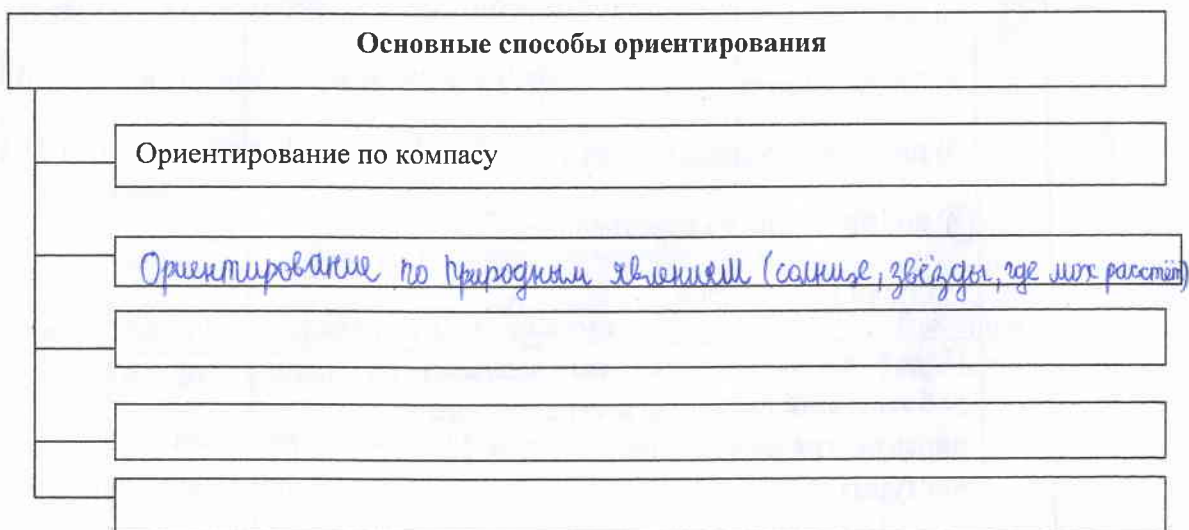 Основные способы ориентирования
Ориентирование по компасу
Ориентирование по природным явлениям (солнце, звёзды, где мох расстёт)